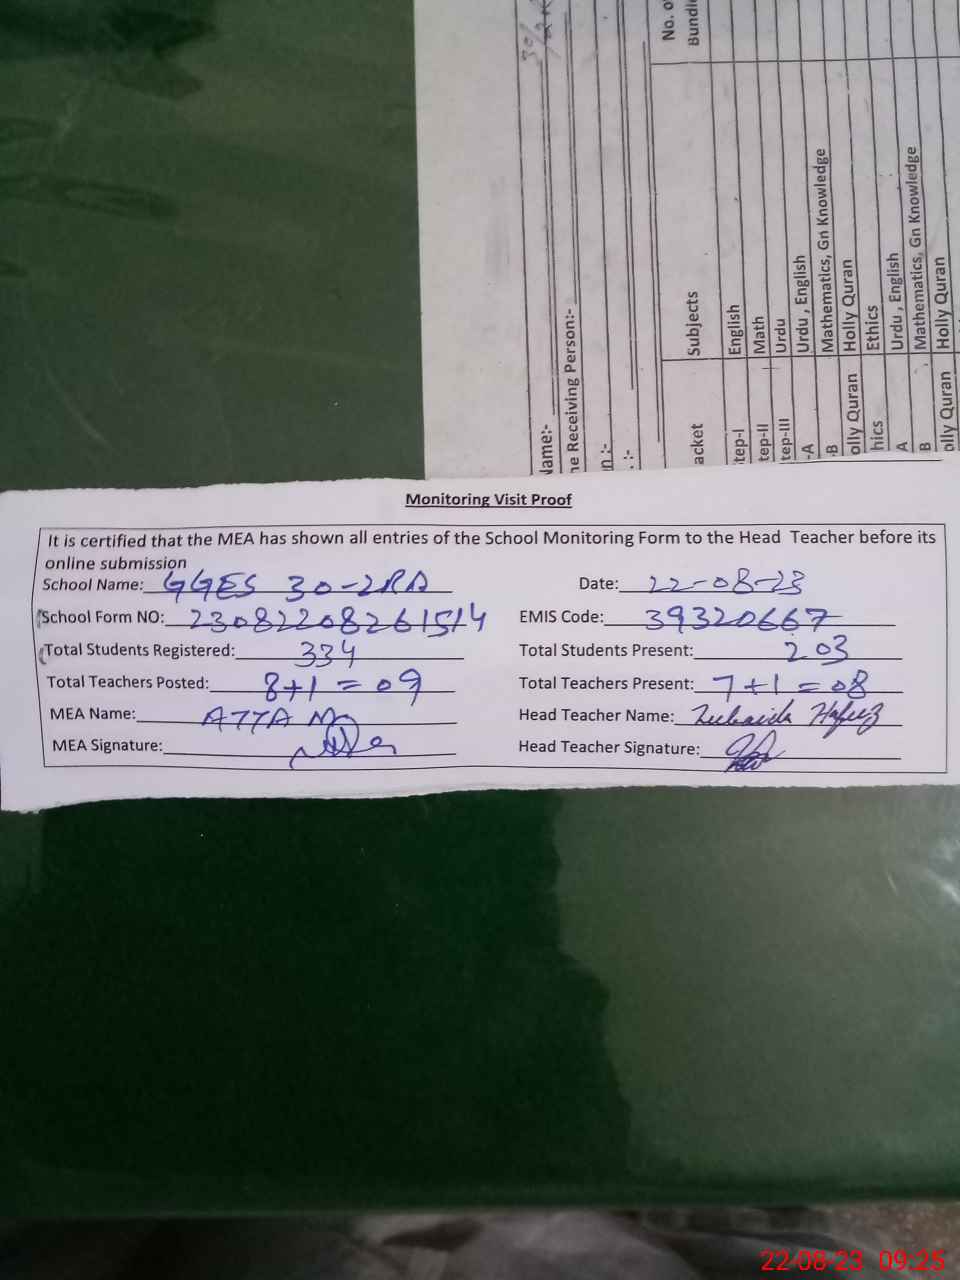 No. o
Bundl
Name:-
ne Receiving Person:-
n :-
. :-
acket Subjects
tep-I English
tep-II Math
tep-III Urdu
-A Urdu , English
-B Mathematics, Gn Knowledge
olly Quran Holly Quran
hics Ethics
A Urdu , English
B Mathematics, Gn Knowledge
olly Quran Holly Quran
Monitoring Visit Proof
It is certified that the MEA has shown all entries of the School Monitoring Form to the Head Teacher before its
online submission
School Name: GGES 30-2RA Date: 22-08-23
School Form NO: 23082208261514 EMIS Code: 39320667
Total Students Registered: 334 Total Students Present: 203
Total Teachers Posted: 8+1 = 09 Total Teachers Present: 7+1 = 08
MEA Name: ATTA M Head Teacher Name: Zubaida Hafeez
MEA Signature: Head Teacher Signature:
22-08-23 09:25